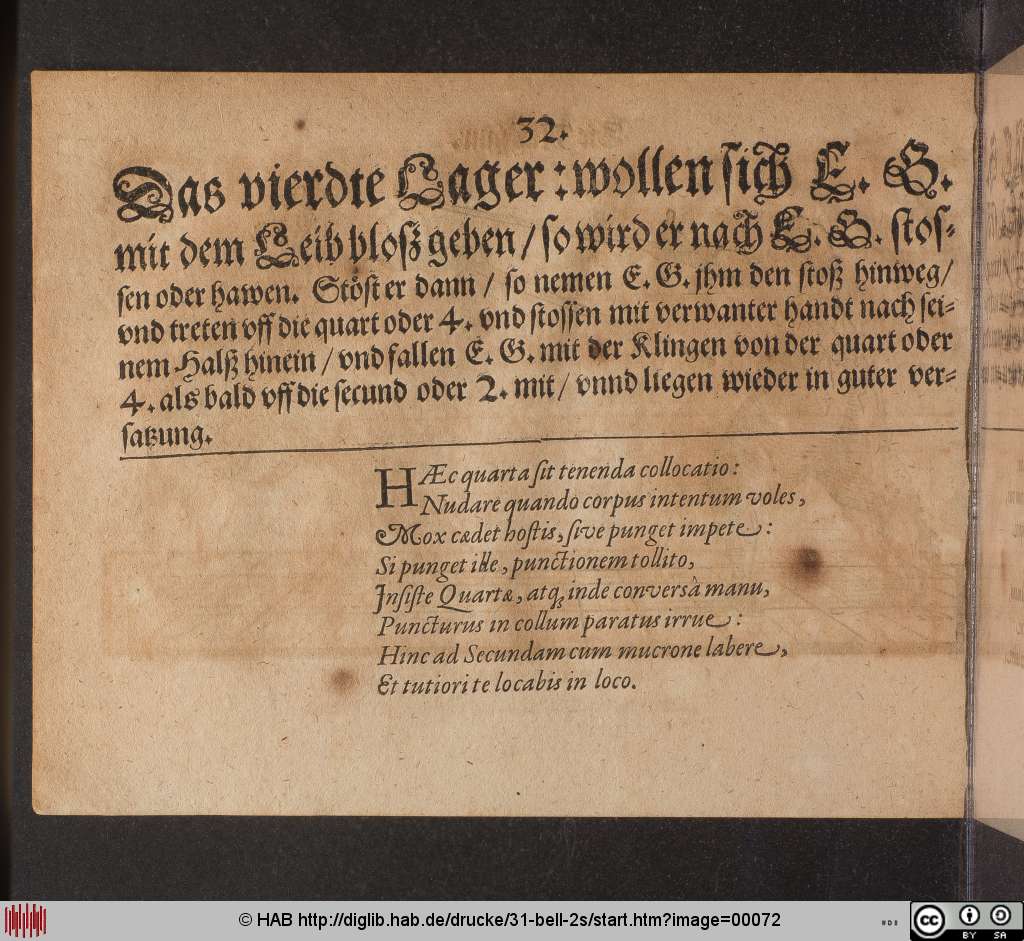 32.
Das vierdte Lager: wollen sich E. G.
mit dem Leib bloß geben / so wird er nach E. G. stos-
sen oder hawen. Stöst er dann / so nemen E. G. jhm den stoß hinweg /
vnd treten vff die quart oder 4. vnd stossen mit verwanter handt nach sei-
nem Halß hinein / vnd fallen E. G. mit der Klingen von der quart oder
4. als bald vff die secund oder 2. mit / vnnd liegen wieder in guter ver-
satzung.
HÆc quarta sit tenenda collocatio:
Nudare quando corpus intentum voles,
Mox cædet hostis, sive punget impete:
Si punget ille, punctionem tollito,
Insiste Quartæ, atq; inde conversâ manu,
Puncturus in collum paratus irrue:
Hinc ad Secundam cum mucrone labere,
Et tutiori te locabis in loco.
© HAB http://diglib.hab.de/drucke/31-bell-2s/start.htm?image=00072
cc BY SA